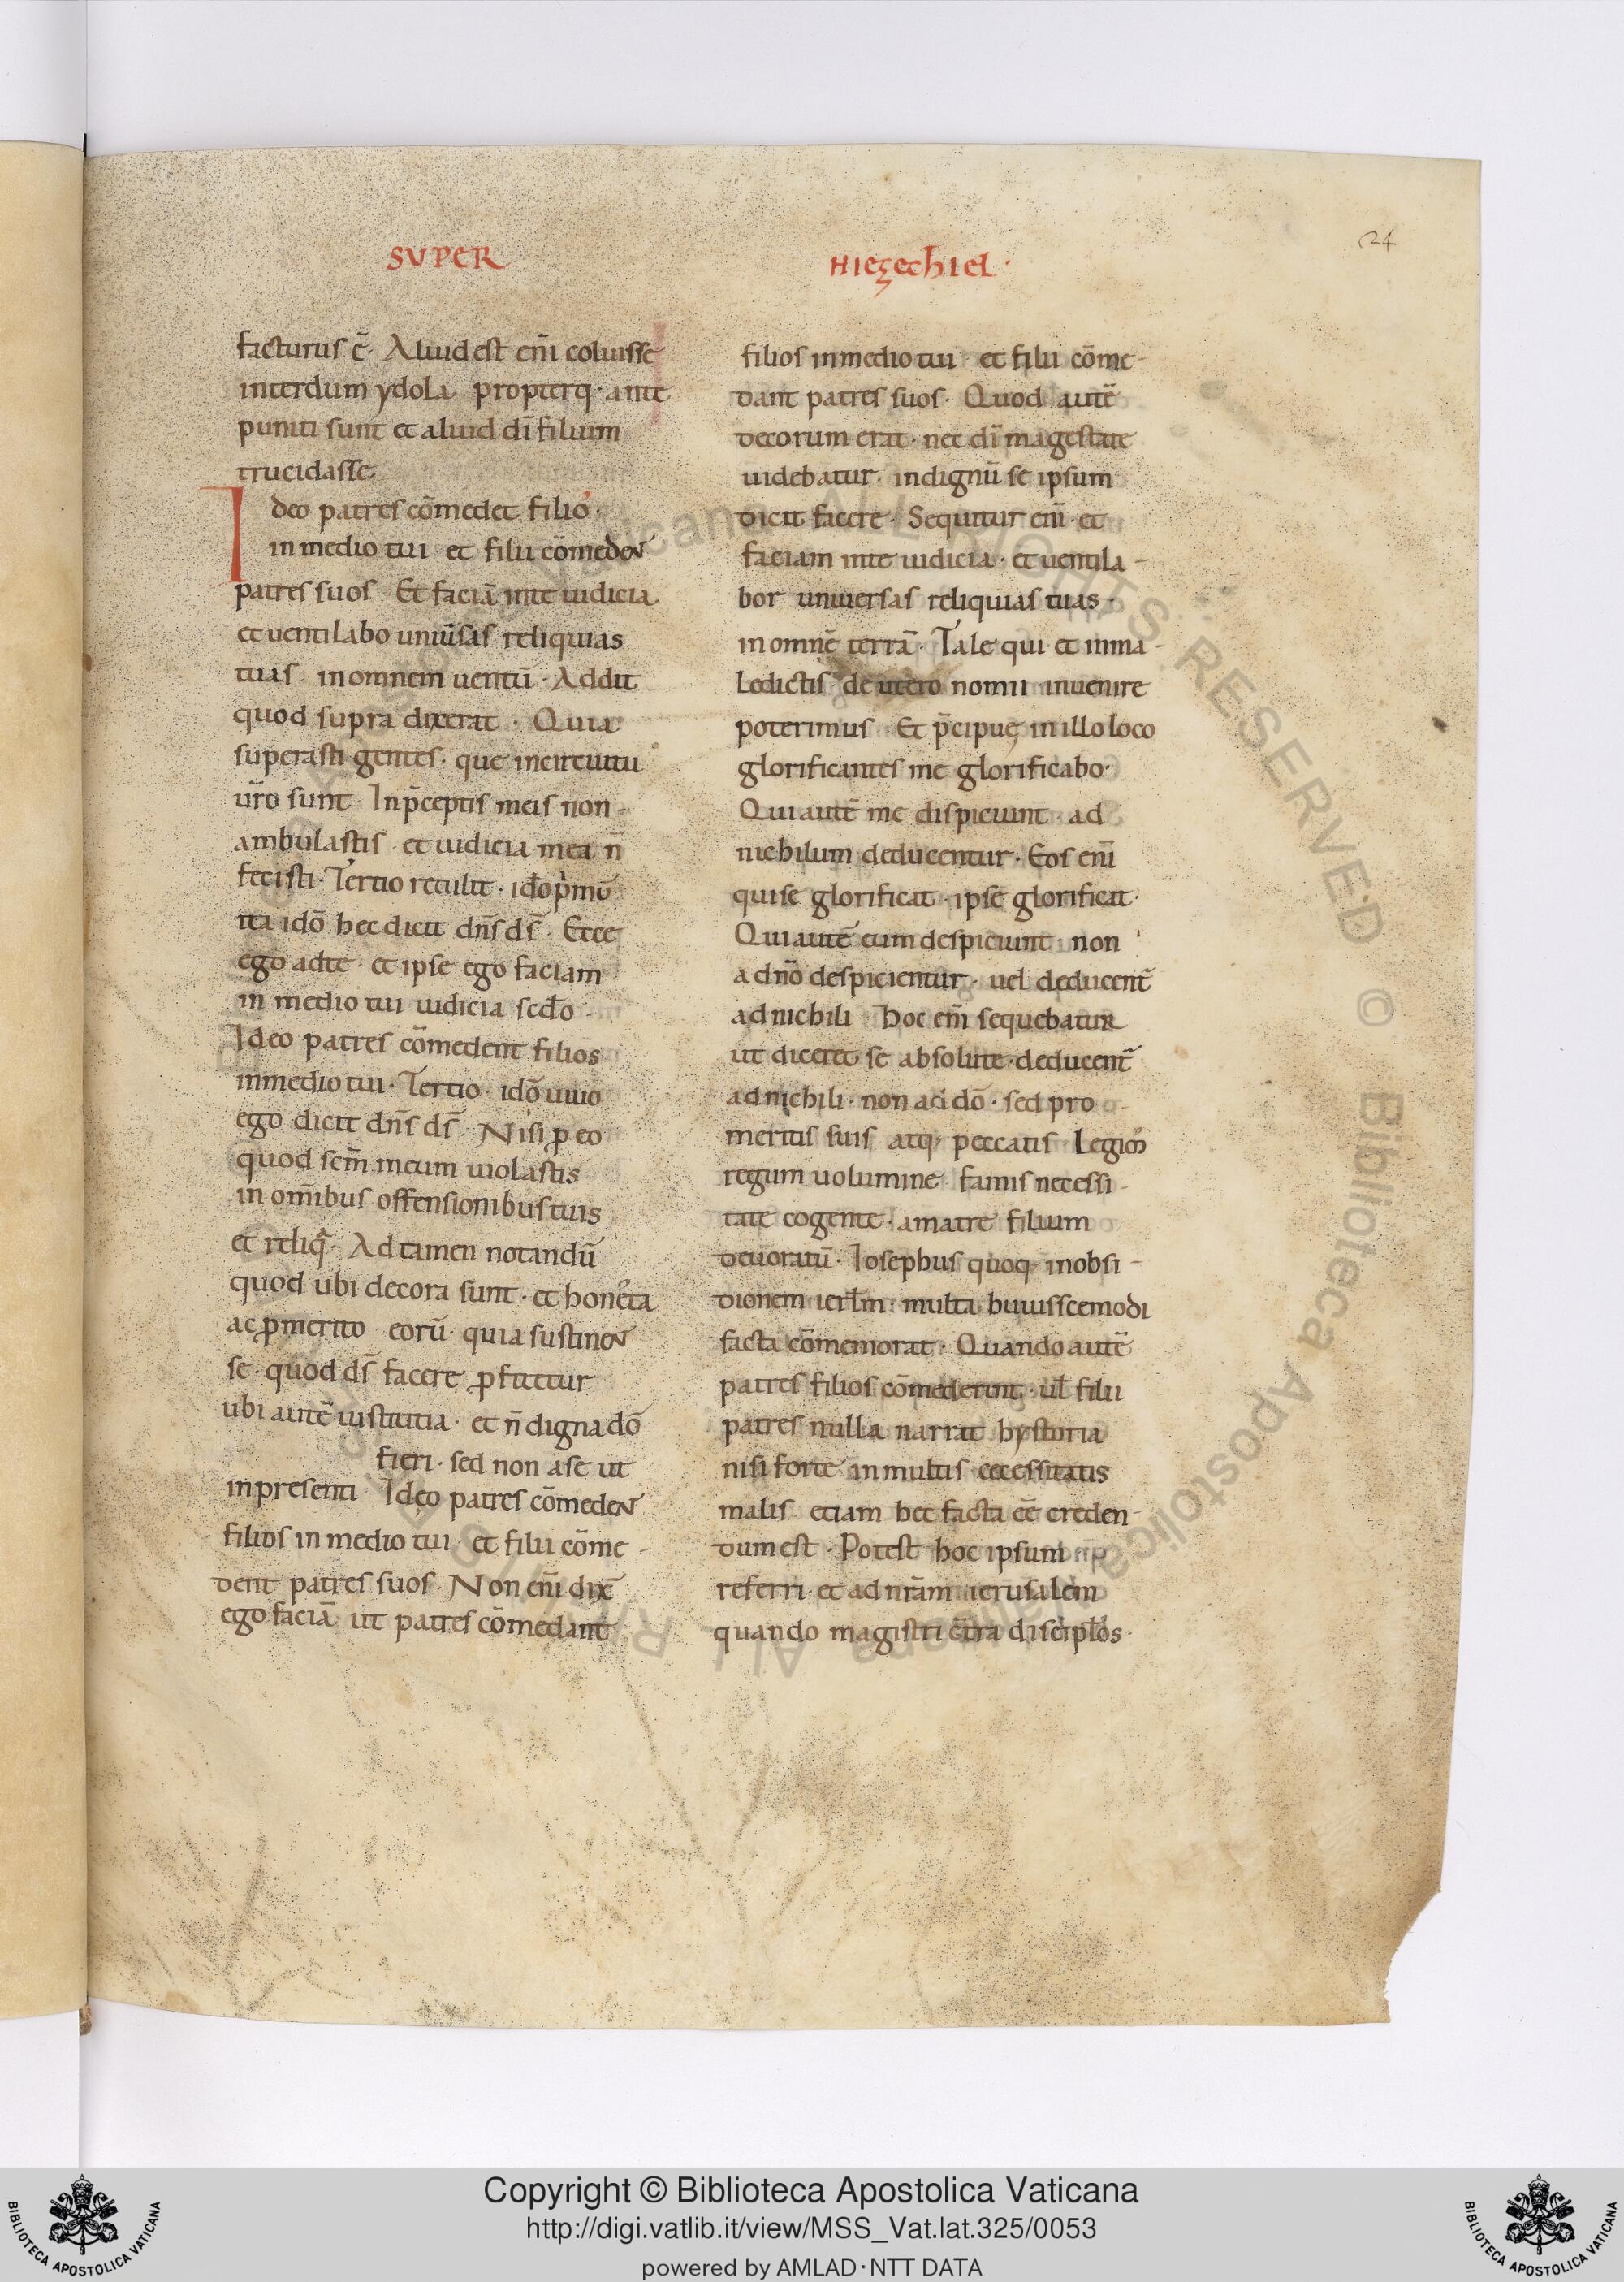 SUPER
HIEZECHIEL·
24
facturus ē· Aliud est eni̅ coluisse
interdum ydola propterq· ante
puniti sunt et aliud di̅ filium
trucidasse
Ideo patres co̅medet filio·
in medio tui et filii co̅meden̅
patres suos Et facia̅ inte iudicia
et uentilabo uniu̅sas reliquias
tuas inomnem uentu̅· Addit
quod supra dixerat· Quia
superasti gentes· que incircuitu
ur̅o sunt In p̅ceptis meis non
ambulastis et iudicia mea n̅
fecisti· Tertio retulit· ido̅ p̅mu̅
ita ido̅ hec dicit dn̅s ds̅· Ecce
ego adte et ipse ego faciam
in medio tui iudicia scd̅o
Ideo patres co̅medent filios
inmedio tui· Tertio· ido̅ uiuo
ego dicit dn̅s ds̅ Nisi ꝓ eo
quod sc̅m meum uiolastis
in om̅ibus offensionibus tuis
et reliq̅· Ad tamen notandu̅
quod ubi decora sunt· et honesta
ac ꝓmerito eoru̅· quia sustinen̅
se· quod ds̅ facere ꝓfitetur
ubi aute̅ iustitia· et n̅ digna do̅
fieri· sed non ase ut
inpresenti Ideo patres co̅meden̅
filios in medio tui et filii co̅me-
dent patres suos· Non eni̅ dix̅
ego facia̅ ut patres co̅medant
filios inmedio tui et filii co̅me-
dant patres suos· Quod aute̅
decorum erat· nec di̅ magestate
uidebatur indignu̅ se ipsum
dicit facere· Sequitur eni̅· et
faciam inte iudicia· et uentila-
bor uniuersas reliquias tuas·
in omne̅ terra̅· Tale qui et inma-
ledictis de utero nomii inuenire
poterimus Et p̅cipuę in illo loco
glorificantes me glorificabo·
Qui aute̅ me dispiciunt ad
nichilum deducentur· Eos eni̅
qui se glorificat· ipse glorificat·
Qui aute̅ eum despiciunt non
a dn̅o despicientur· uel deducent̅
adnichili hoc eni̅ sequebatur
ut diceret se absolute· deducent̅
adnichili· non a do̅· sed pro
meritis suis atq; peccatis Legim̅
regum uolumine famis necessi-
tate cogente· amatre filium
deuoratu̅· Iosephus quoq; inobsi-
dionem ierl̅m· multa huiuscemodi
facta co̅memorat· Quando aute̅
patres filios co̅mederint· ul̅ filii
patres nulla narrat hystoria
nisi forte in multis ecessitatis
malis etiam hec facta ee̅ creden-
dum est· Potest hoc ipsum
referri et ad nr̅am ierusalem
quando magistri c̅tra discipl̅os·
Copyright © Biblioteca Apostolica Vaticana
http://digi.vatlib.it/view/MSS_Vat.lat.325/0053
powered by AMLAD·NTT DATA